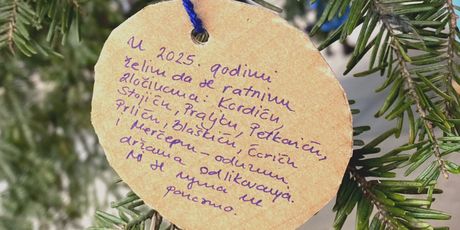 U 2025. godini
želim da se ratnim
zločincima: Kordiću,
Stojiću, Praljku, Petkoviću,
Prliću, Blaškiću, Ćoriću
i Merčepu – oduzmu
državna odlikovanja.
S njima se ne
ponosimo.